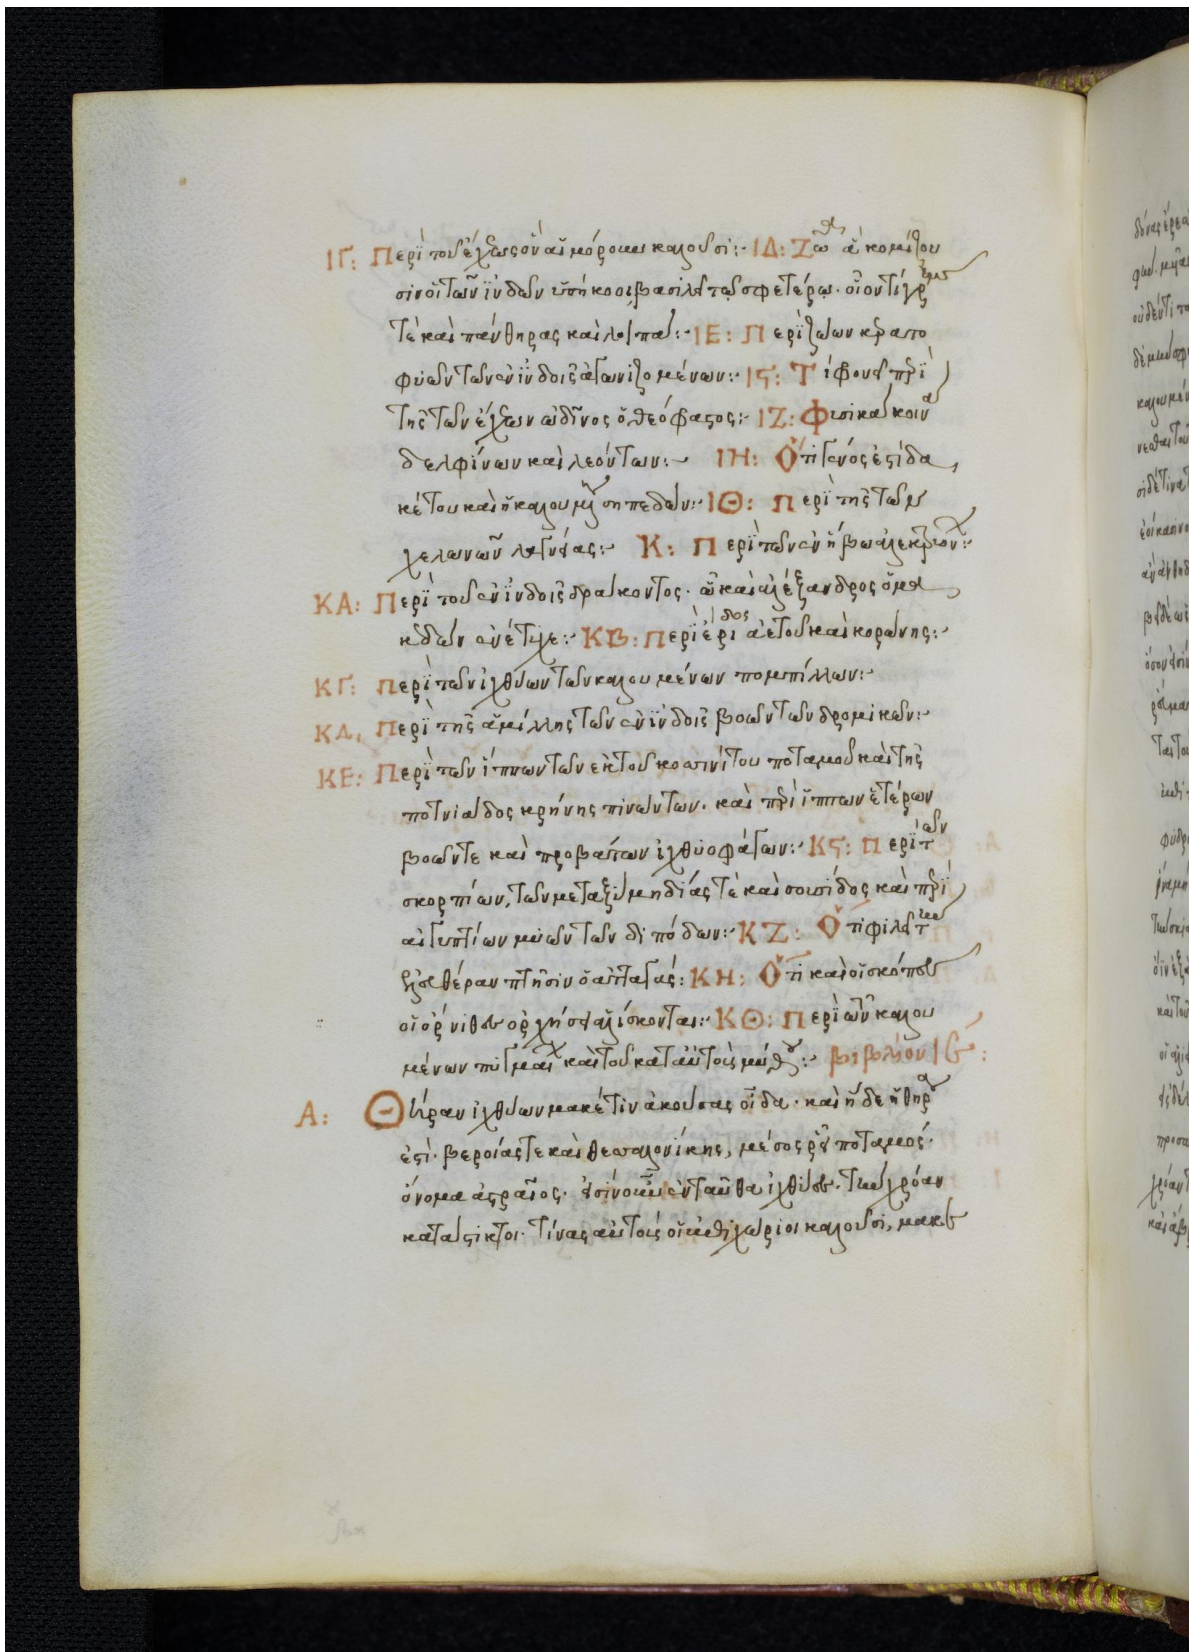 ΙΓ: Περὶ τοῦ ἔχεως ὃν αἱμόρουν καλοῦσι:· ΙΔ: Ζῶα ἃ κομίζου
σιν οἱ τῶν ἰνδῶν ὑπήκοοι βασιλεῖ τῷ σφετέρῳ. οἷον τίγρεις
τὲ καὶ πάνθηρας καὶ λοιπά:· ΙΕ: Περὶ ζώων κραπο
φυῶν τῶν ἐν ἰνδοῖς ἀγωνιζομένων:· Ις: Τί φρονεῖ περὶ
τῆς τῶν ἔχεων ὠδῖνος ὁ θεόφραστος:· ΙΖ: Φυσικὰ κοινὰ
δελφίνων καὶ λεόντων:· ΙΗ: Ὅτι γένος ἐστὶ δα
κέτου καὶ ἡ καλουμένη σηπεδών:· ΙΘ: Περὶ τῆς τῶν
χελωνῶν λαγνείας:· Κ: Περὶ τῶν ἐν ἥβω ἀλεκτρυόνων:·
ΚΑ: Περὶ τοῦ ἐν ἰνδοῖς δράκοντος. ᾧ καὶ ἀλέξανδρος ὁ μα
κεδὼν ἐνέτυχε:· ΚΒ: Περὶ ἔριδος ἀετοῦ καὶ κορώνης:·
ΚΓ: Περὶ τῶν ἰχθύων τῶν καλουμένων πομπίλλων:·
ΚΔ, Περὶ τῆς ἁμίλλης τῶν ἐν ἰνδοῖς βοῶν τῶν δρομικῶν:·
ΚΕ: Περὶ τῶν ἵππων τῶν ἐκ τοῦ κοσσινίτου ποταμοῦ καὶ τῆς
ποτνιάδος κρήνης πινόντων. καὶ περὶ ἵππων ἑτέρων
βοῶν τε καὶ προβάτων ἰχθυοφάγων:· Κς: Περὶ τῶν
σκορπίων, τῶν μεταξὺ μηδίας τὲ καὶ σουσίδος καὶ περὶ
αἰγυπτίων μυῶν τῶν διπόδων:· ΚΖ: Ὅτι φιλεῖ τὴν
ἐλευθέραν πτῆσιν ὁ ἀτταγάς: ΚΗ: Ὅτι καὶ οἱ σκόπες
οἱ ὄρνιθες ὀρχήσει ἁλίσκονται:· ΚΘ: Περὶ τῶν καλου
μένων πυγμαίων καὶ τοῦ κατ αὐτοὺς μύθου:· βιβλίον ΙΕ:
Α: Θήραν ἰχθύων μακέτιν ἀκούσας οἶδα. καὶ ἥδε ἡ θήρα
ἐστί. βεροίας τε καὶ θεσσαλονίκης, μέσος ῥεῖ ποταμός.
ὄνομα ἀστραῖος. εἰσὶν οὖν ἐνταῦθα ἰχθύες. τὴν χρόαν
κατάστικτοι. τίνας αὐτοὺς οἱ ἐπιχώριοι καλοῦσι, μακε